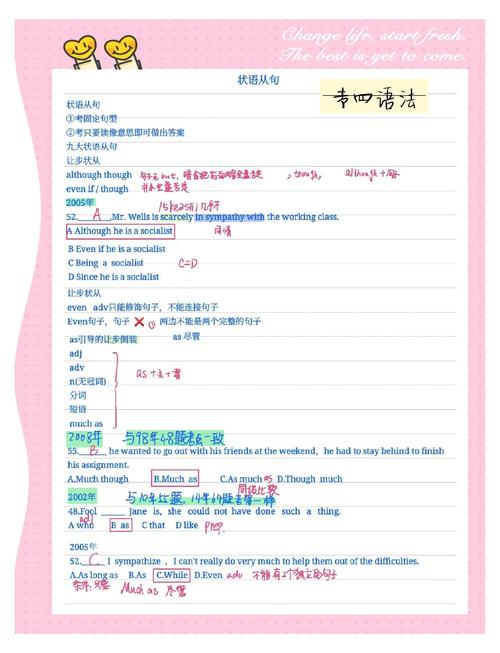 Change life, start fresh.
The best is yet to come.
状语从句
专四语法
状语从句
①考固定句型
②考只要读像意思即可做出答案
九大状语从句
让步状从
although though , though, although+同
even if / though
2005年
52. A ,Mr. Wells is scarcely in sympathy with the working class.
A Although he is a socialist 同情
B Even if he is a socialist
C Being a socialist C=D
D Since he is a socialist
让步状从
even adv只能修饰句子，不能连接句子
Even句子，句子 ❌ ① 两边不能是两个完整的句子
as引导的让步倒装 as 尽管
adj
adv
n(无冠词) as+主+谓
分词
短语
much as
2008年 与98年48题考点一致
55. B he wanted to go out with his friends at the weekend, he had to stay behind to finish
his assignment.
A.Much though B.Much as C.As much as D.Though much
同级比较
2002年 与10年55题,14年64题考得一样
48.Fool ____ Jane is, she could not have done such a thing.
adj
A who B as C that D like prep.
2005年
52. C I sympathize , I can't really do very much to help them out of the difficulties.
A.As long as B.As C.While D.Even adv 不能有2个独立的句子
条件:只要 Much as 尽管